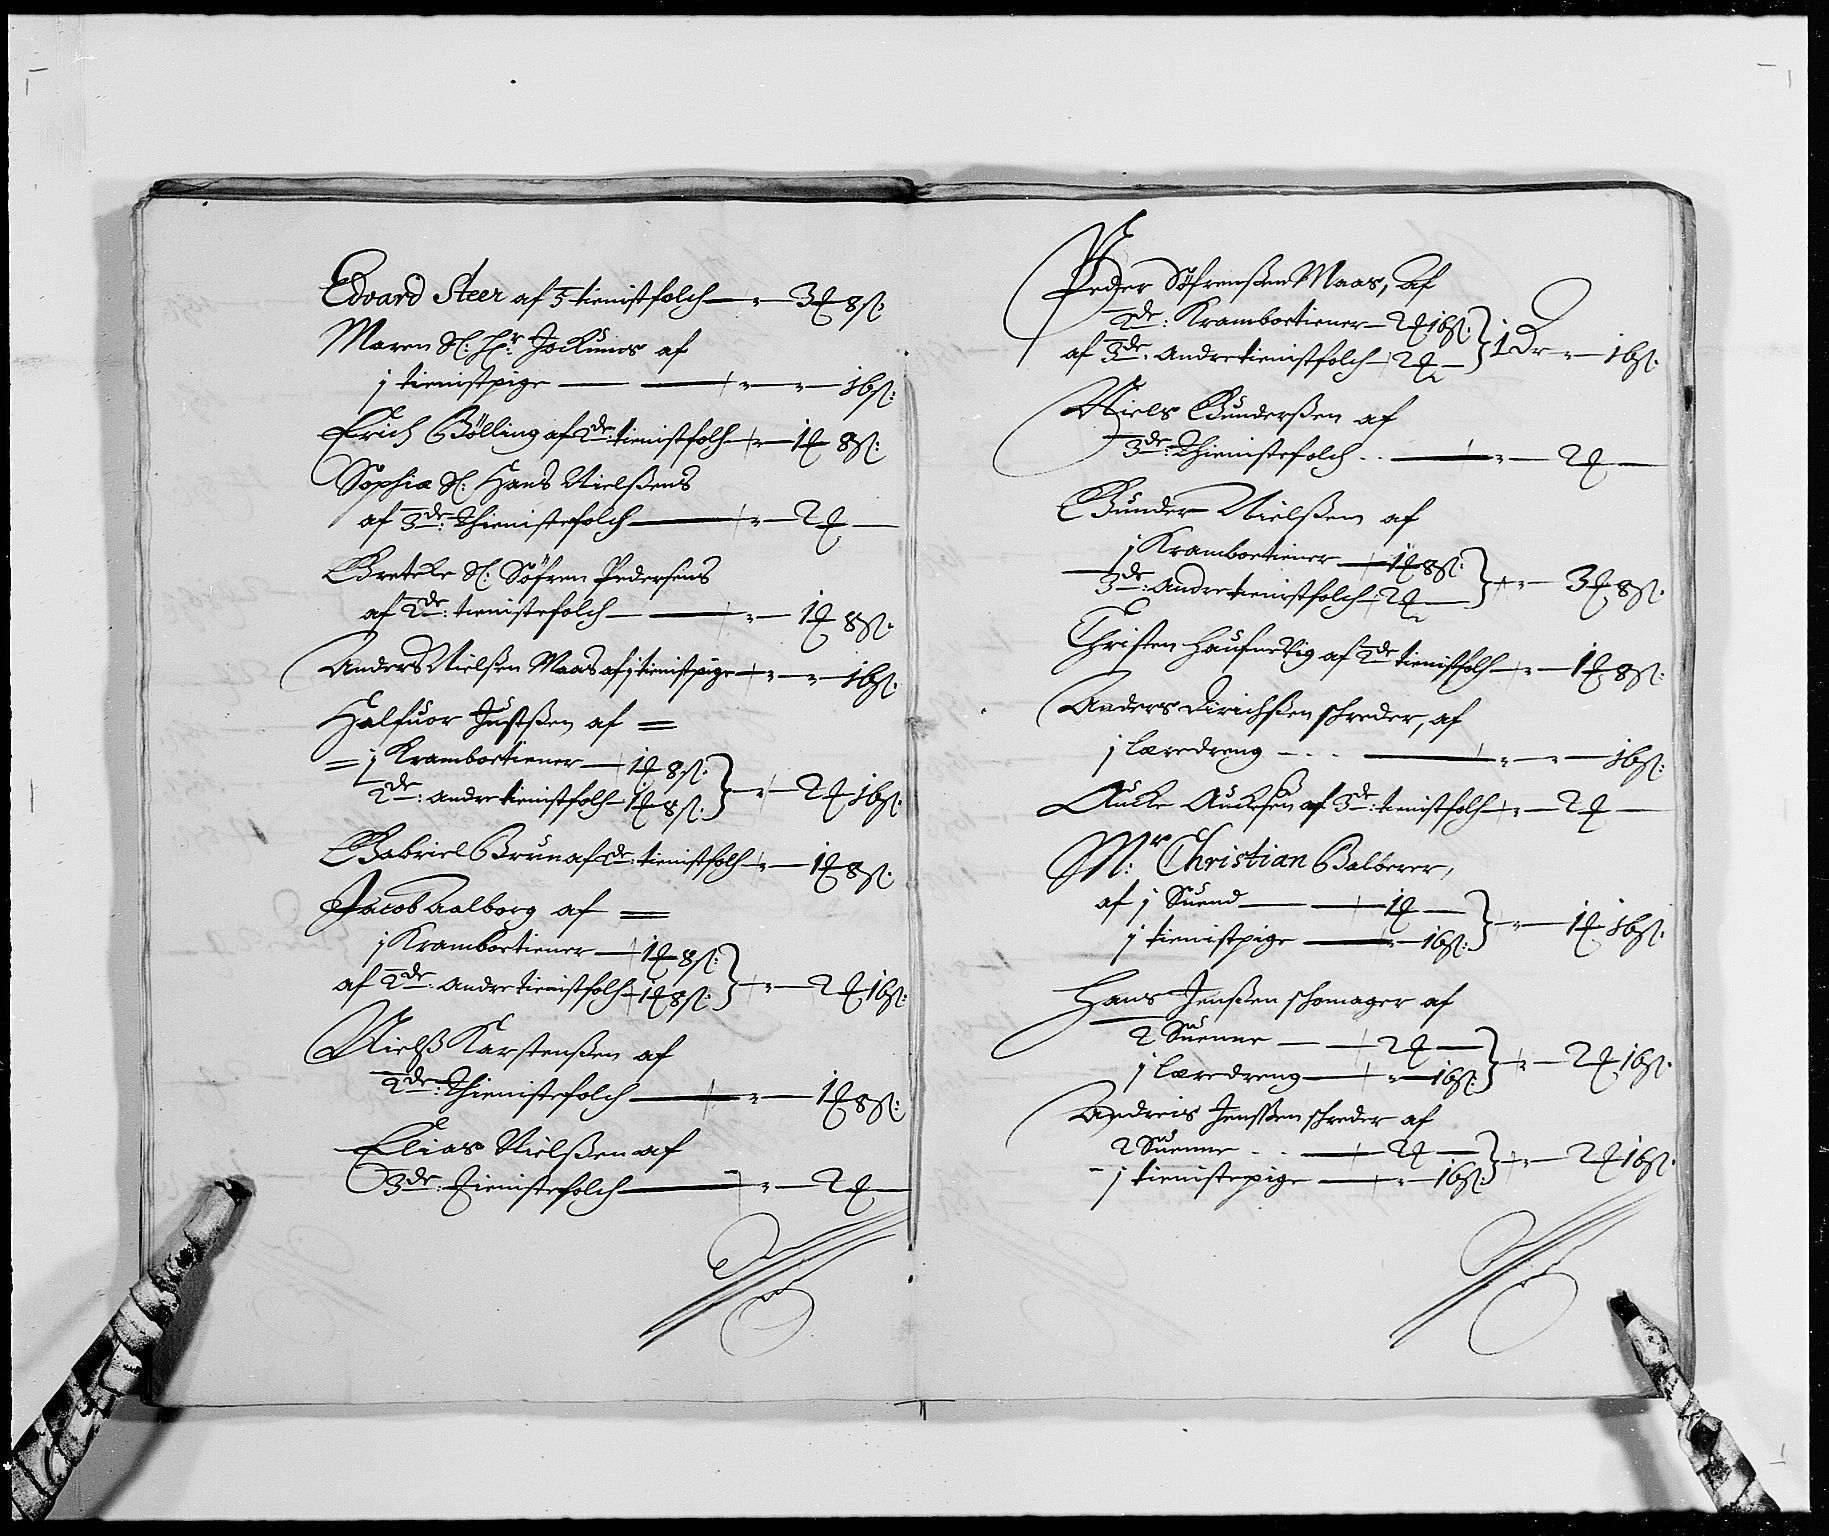 Edvard Steer af 5 tienistfolch — " — 3 ꝶ 8 ß:
Maren Sl: Hr: Jockums af
j tienistpige — — " — " — 16 ß:
Erich Bölling af 2de: tienistfolch — " — 1 ꝶ 8 ß:
Sophia Sl: Hans Nielßens
af 3de: Thienistefolch — " — 2 ꝶ —
Gretche Sl: Söfren Pedersens
af 2de: tienistefolch — — " — 1 ꝶ 8 ß:
Anders Nielßen Maas af j tienistpige — " — " — 16 ß:
Halfuor Justßen af =
= j Kramboetiener — 1 ꝶ 8 ß:
2de: andre tienistfolch 1 ꝶ 8 ß: } — " — 2 ꝶ 16 ß:
Gabriel Brun af 2de: tienistfolch — " — 1 ꝶ 8 ß:
Jacob Aalborg af =
j Kramboetiener — 1 ꝶ 8 ß:
af 2de: andre tienistfolch 1 ꝶ 8 ß: } — " — 2 ꝶ 16 ß:
Nielß Karstenßen af
2de: Thienistefolch — " — 1 ꝶ 8 ß:
Elias Nielßen af
3de: Tienistefolch — " — 2 ꝶ —
Peder Söfrenßen Maas, af
2de: Kramboetiener — 2 ꝶ 16 ß:
af 3de: Andre tienistfolch 2 ꝶ — } 1 Dr — " — 16 ß:
Niels Gunderßen af
3de: Thienistefolch . . — " — 2 ꝶ —
Gunder Nielßen af
j Kramboetiener — 1 ꝶ 8 ß:
3de: Andre tienistfolch 2 ꝶ — } — " — 3 ꝶ 8 ß:
Christen af 2de tienistfolch — " — 1 ꝶ 8 ß:
Anders Dirichßen schreder, af
j læredreng — . . . — " — " — 16 ß:
Aucke Auckesen af 3de: tienistfolch — " — 2 ꝶ —
Mr: Christian Balberer,
af j Suend — — 1 ꝶ —
j tienistpige — " — 16 ß: } — " — 1 ꝶ 16 ß:
Hans Jenßen schomager af
2 Suenne — — 2 ꝶ —
j læredreng — " — 16 ß: } — " — 2 ꝶ 16 ß:
Andreis Jenßen schreder af
2 Suenne . . — 2 ꝶ —
- j tienistepige — " — 16 ß: } — " — 2 ꝶ 16 ß: